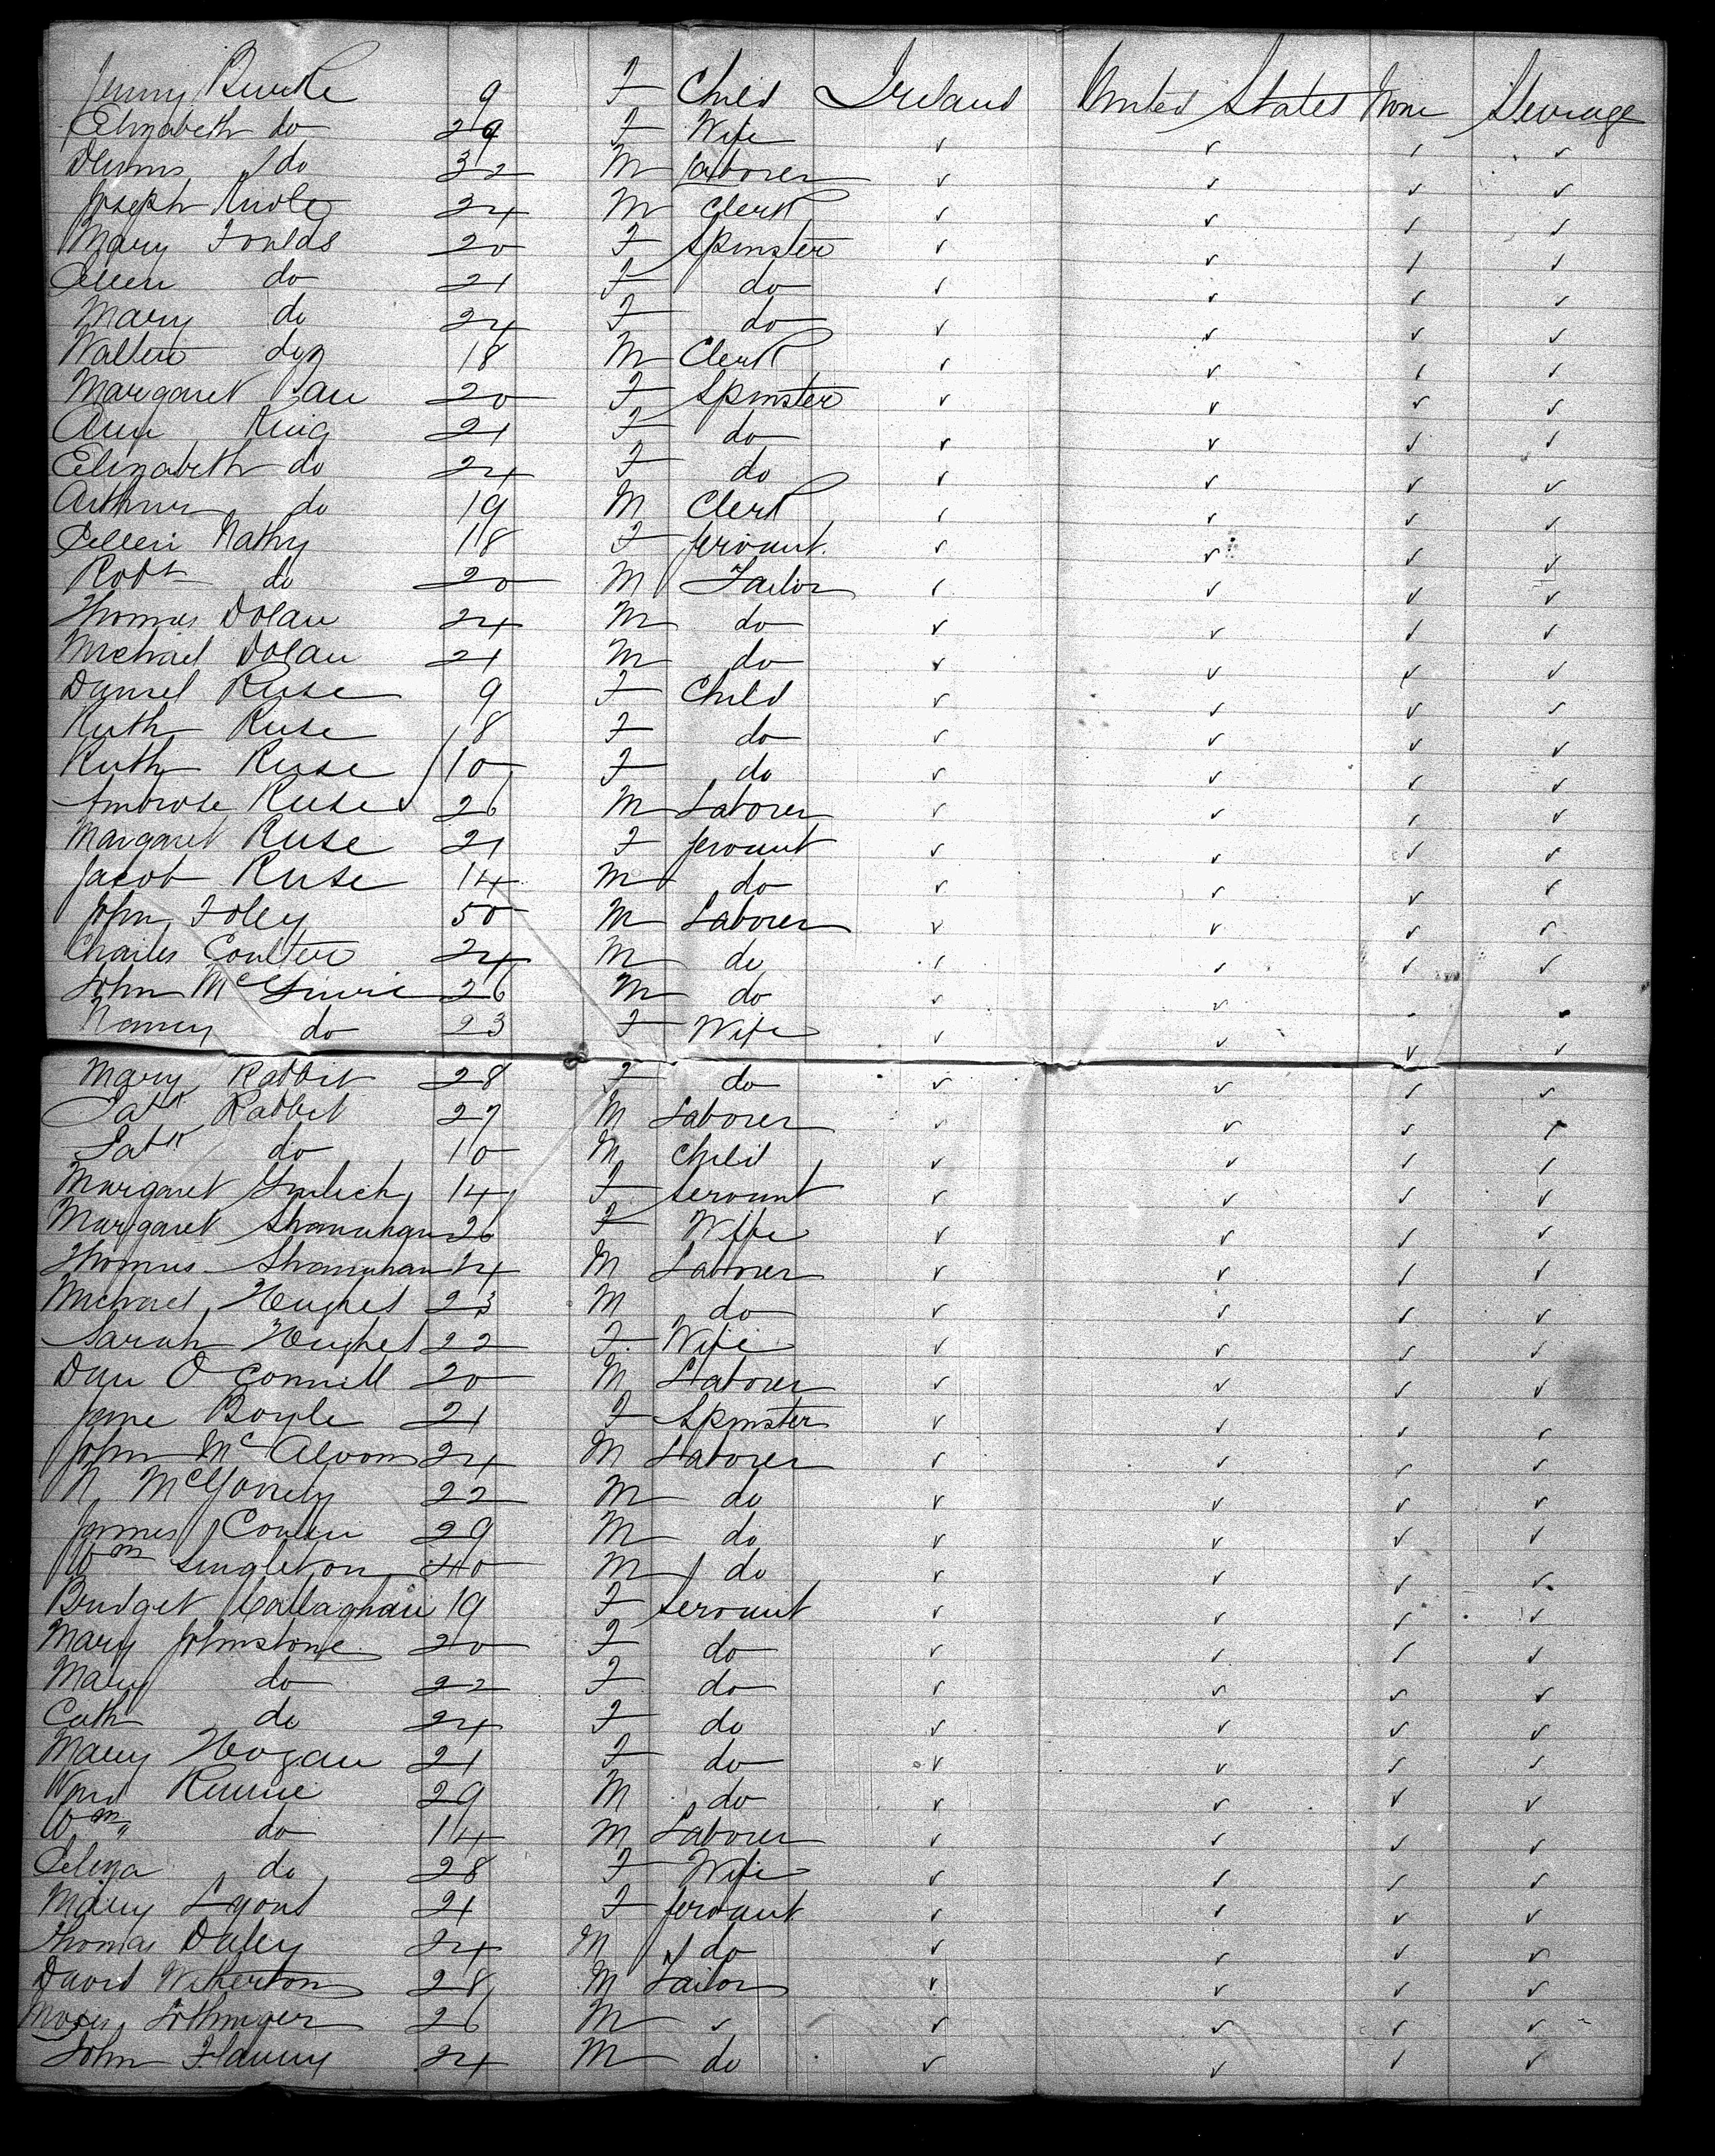 Jenny Burke 9 F Child Ireland United States None Steerage
Elizabeth do 29 F Wife ✓ ✓ ✓ ✓
Dennis do 32 M Laborer ✓ ✓ ✓ ✓
Joseph 24 M Clerk ✓ ✓ ✓ ✓
Mary Foulds 20 F Spinster ✓ ✓ ✓ ✓
Ellen do 21 F do ✓ ✓ ✓ ✓
Mary do 24 F do ✓ ✓ ✓ ✓
Walter do 18 M Clerk ✓ ✓ ✓ ✓
Margaret 20 F Spinster ✓ ✓ ✓ ✓
Ann King 21 F do ✓ ✓ ✓ ✓
Elizabeth do 24 F do ✓ ✓ ✓ ✓
Arthur do 19 M Clerk ✓ ✓ ✓ ✓
Ellen Nathy 18 F Servant ✓ ✓ ✓ ✓
Robt do 20 M Tailor ✓ ✓ ✓ ✓
Thomas Dolan 24 M do ✓ ✓ ✓ ✓
Michael Dolan 21 M do ✓ ✓ ✓ ✓
Daniel Ruse 9 F Child ✓ ✓ ✓ ✓
Ruth Ruse 18 F do ✓ ✓ ✓ ✓
Ruth Ruse 10 F do ✓ ✓ ✓ ✓
Ambrose Ruse 26 M Laborer ✓ ✓ ✓ ✓
Margaret Ruse 21 F Servant ✓ ✓ ✓ ✓
Jacob Ruse 14 M do ✓ ✓ ✓ ✓
John Foley 50 M Laborer ✓ ✓ ✓ ✓
Charles Coulter 24 M do ✓ ✓ ✓ ✓
John 26 M do ✓ ✓
Nancy do 23 F Wife ✓ ✓ ✓ ✓
Mary Rabbit 28 F do ✓ ✓ ✓ ✓
Patk Rabbit 27 M Laborer ✓ ✓ ✓ ✓
Patk do 10 M Child ✓ ✓ ✓ ✓
Margaret 14 F Servant ✓ ✓ ✓ ✓
Margaret Shanahan 26 F Wife ✓ ✓ ✓ ✓
Thomas Shanahan 24 M Laborer ✓ ✓ ✓ ✓
Michael Hughes 23 M do ✓ ✓ ✓ ✓
Sarah Hughes 22 F Wife ✓ ✓ ✓ ✓
Dan O'Connill 20 M Laborer ✓ ✓ ✓ ✓
Jane Boyle 21 F Spinster ✓ ✓ ✓ ✓
John 24 M Laborer ✓ ✓ ✓ ✓
N 22 M do ✓ ✓ ✓ ✓
James 29 M do ✓ ✓ ✓ ✓
Wm Singleton 40 M do ✓ ✓ ✓ ✓
Bridget Callaghan 19 F Servant ✓ ✓ ✓ ✓
Mary Johnstone 20 F do ✓ ✓ ✓ ✓
Mary do 22 F do ✓ ✓ ✓ ✓
Cath do 24 F do ✓ ✓ ✓ ✓
Mary Hogan 21 F do ✓ ✓ ✓ ✓
Rennie 29 M do ✓ ✓ ✓ ✓
Wm do 14 M Laborer ✓ ✓ ✓ ✓
Selina do 28 F Wife ✓ ✓ ✓ ✓
Mary Lyons 21 F Servant ✓ ✓ ✓ ✓
Thomas Daley 24 M do ✓ ✓ ✓ ✓
David Witherton 28 M Tailor ✓ ✓ ✓ ✓
Moses 26 M ✓ ✓ ✓ ✓ ✓
John 24 M do ✓ ✓ ✓ ✓